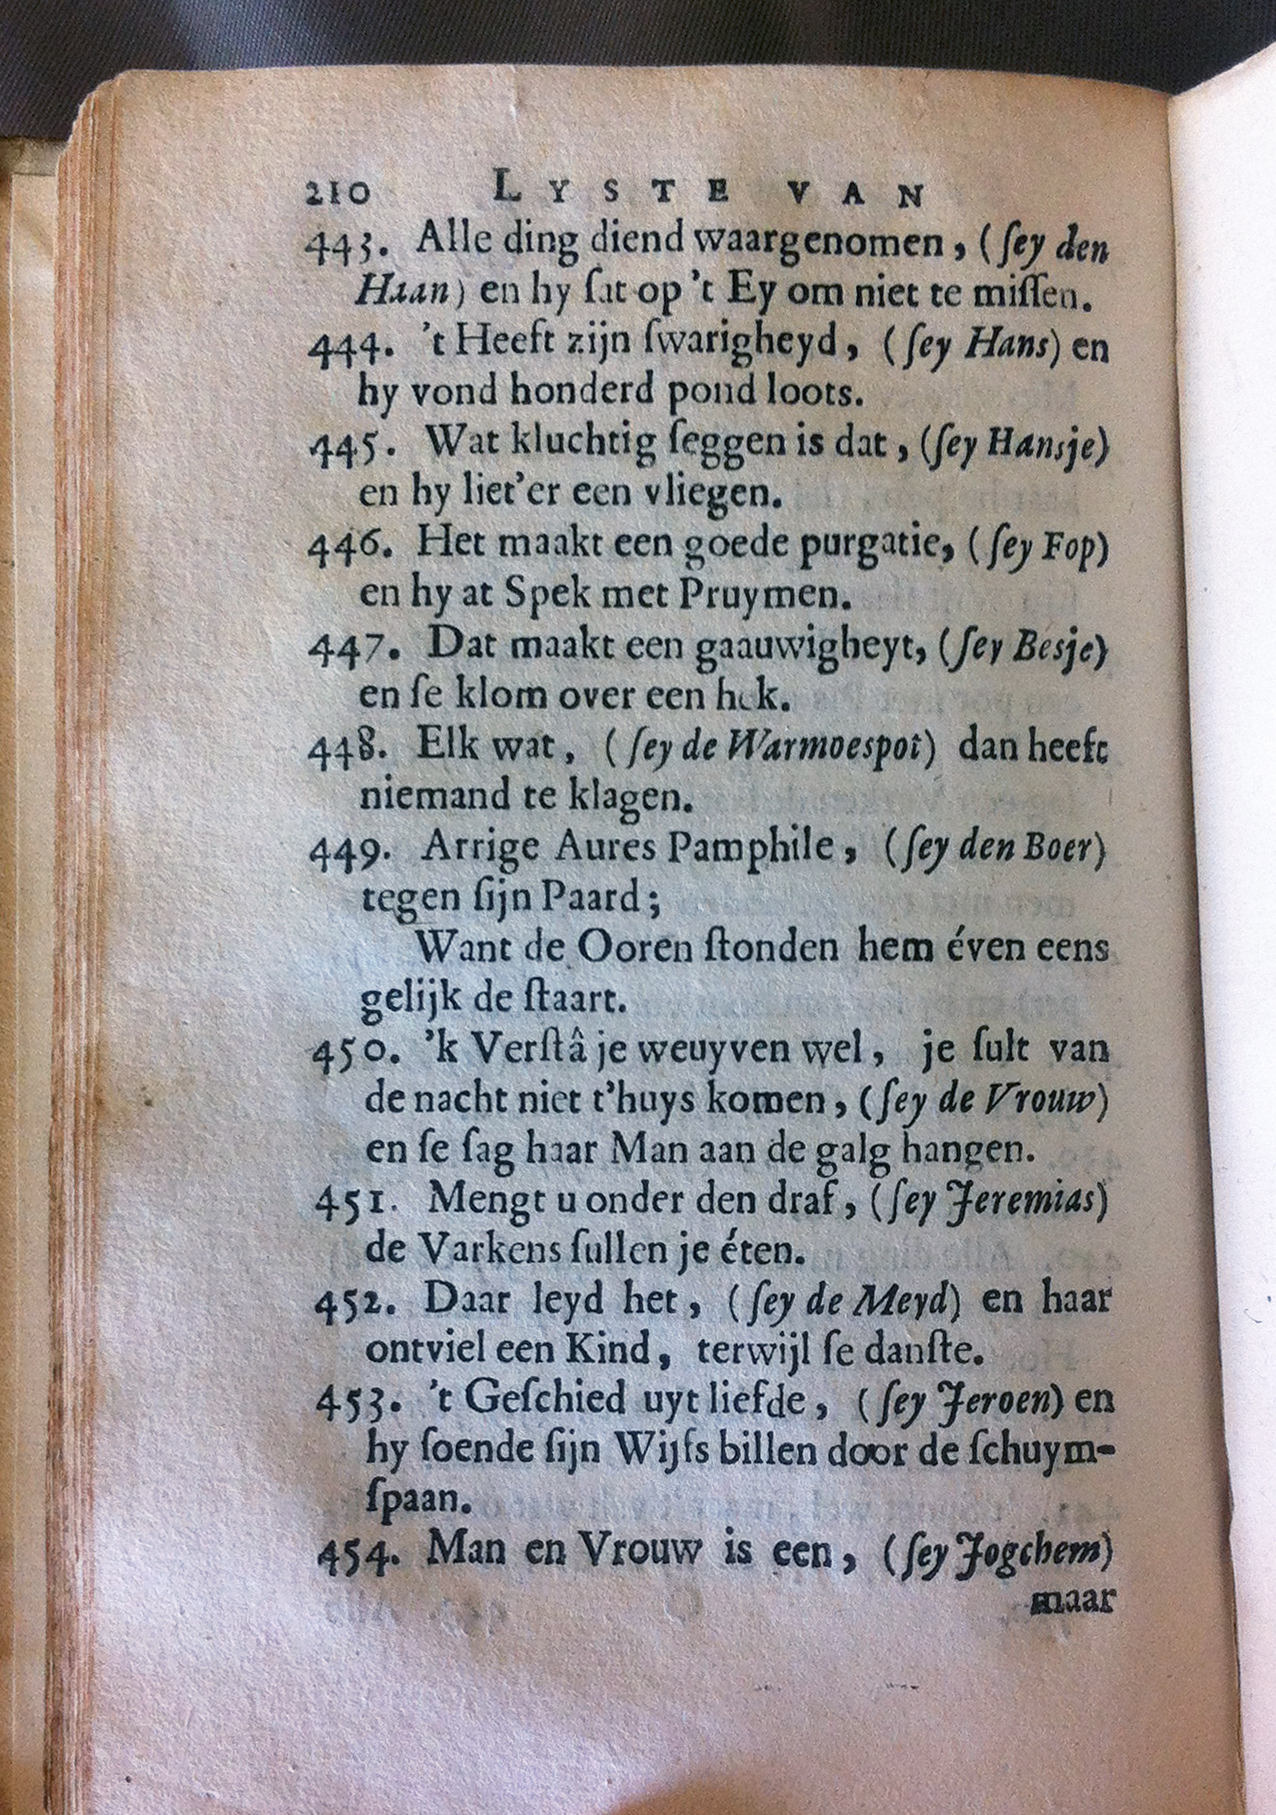 210 LYSTE VAN
443. Alle ding diend waargenomen, (ſey den
Haan) en hy ſat op 't Ey om niet te miſſen.
444. 't Heeft zijn ſwarigheyd, (ſey Hans) en
hy vond honderd pond loots.
445. Wat kluchtig ſeggen is dat, (ſey Hansje)
en hy liet'er een vliegen.
446. Het maakt een goede purgatie, (ſey Fop)
en hy at Spek met Pruymen.
447. Dat maakt een gaauwigheyt, (ſey Besje)
en ſe klom over een hek.
448. Elk wat, (ſey de Warmoespot) dan heeft
niemand te klagen.
449. Arrige Aures Pamphile, (ſey den Boer)
tegen ſijn Paard;
Want de Ooren ſtonden hem éven eens
gelijk de ſtaart.
450. 'k Verſtâ je weuyven wel, je ſult van
de nacht niet t'huys komen, (ſey de Vrouw)
en ſe ſag haar Man aan de galg hangen.
451. Mengt u onder den draf, (ſey Jeremias)
de Varkens ſullen je éten.
452. Daar leyd het, (ſey de Meyd) en haar
ontviel een Kind, terwijl ſe danſte.
453. 't Geſchied uyt liefde, (ſey Jeroen) en
hy ſoende ſijn Wijfs billen door de ſchuym-
ſpaan.
454. Man en Vrouw is een, (ſey Jogchem)
maar